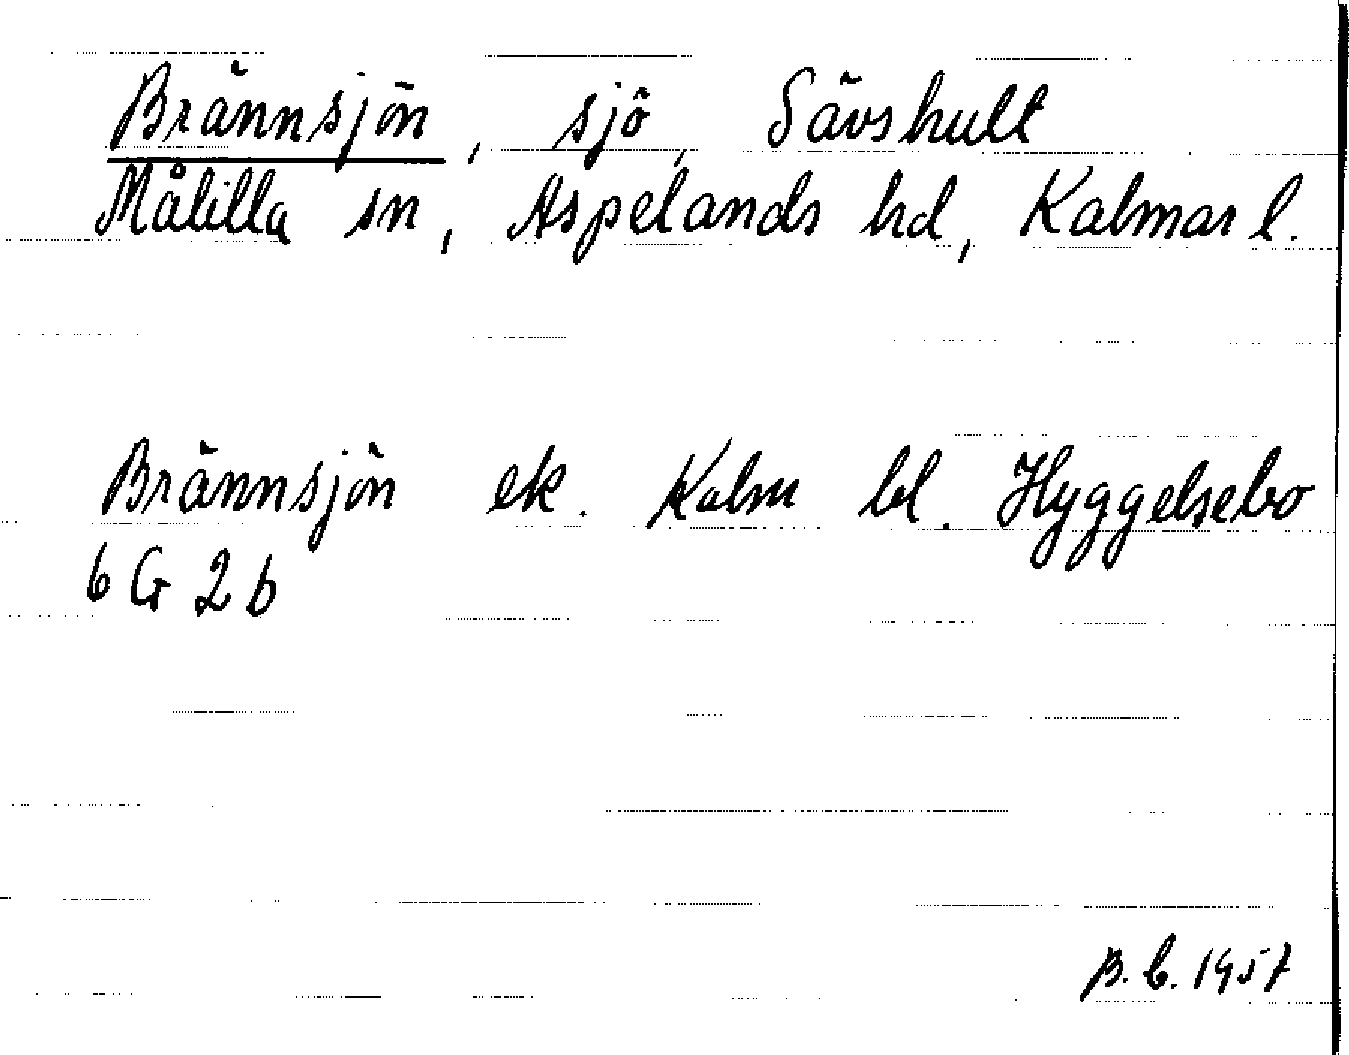 Brännsjön, sjö, Sävshult
Målilla sn, Aspelands hd, Kalmar l.
Brännsjön ek. Kalm bl. Hyggelsebo
6 G 2 b
B. C. 1957